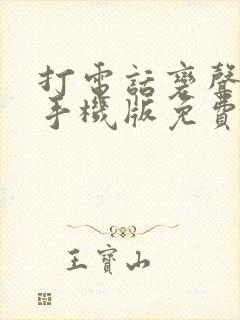 打電話變聲
手機版免費
王寶山